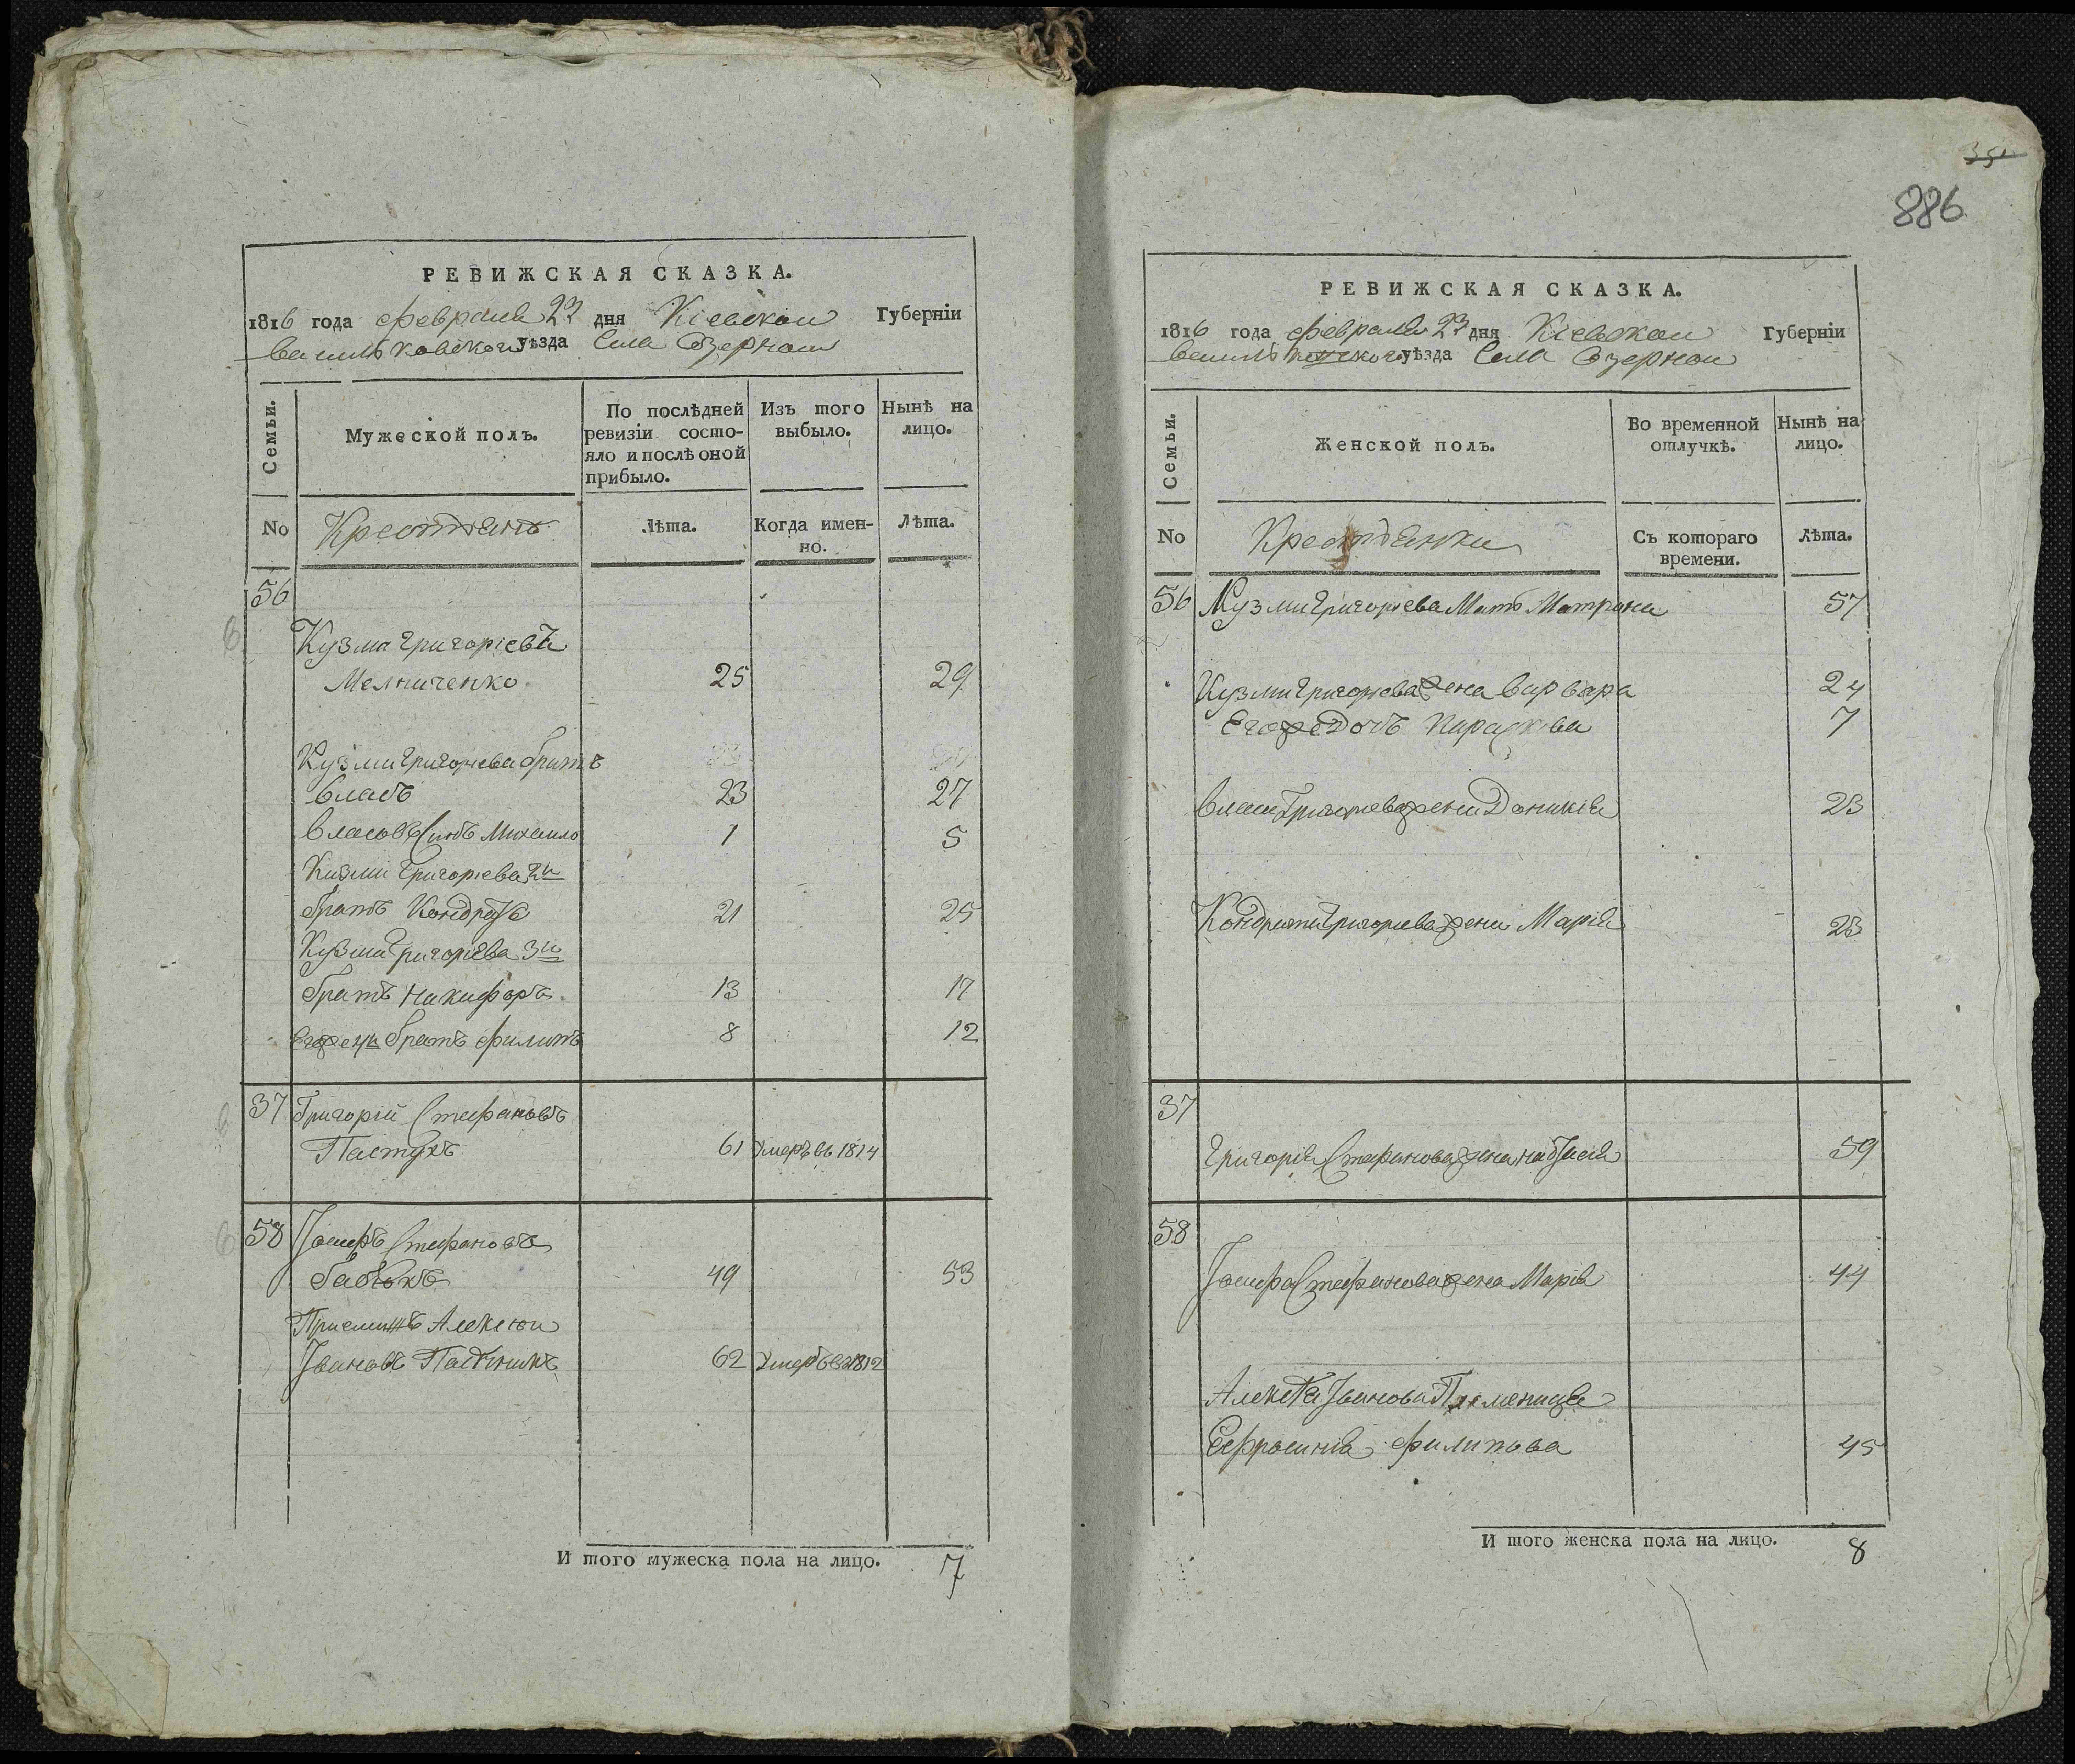 РЕВИЖСКАЯ СКАЗКА.
1816 года февраля 23 дня Кіевской Губерніи
Васильковского уѣзда Села Озерной
Семьи.
Мужеской полъ.
По послѣдней ревизіи состо-
яло и послѣ оной
прибыло.
Изъ того
выбыло.
Нынѣ на
лицо.
No
Крестянъ
Лѣта.
Когда имен-
но.
Лѣта.
56
Кузма Григоріевъ
Мелниченко 25 29
Кузми Григориева братъ
Власъ 23 27
Власовъ Синъ Михаило 1 5
Кузми Григориева 2й
братъ Кондратъ 21 25
Кузми Григориева 3й
братъ Никифоръ 13 17
Егоже 4й братъ Филипъ 8 12
37 Григорій Стефановъ
Пастухъ 61 Умеръ въ 1814
58 Іосифъ Стефановъ
49 53
Алексіи
Івановъ Пасѣчникъ 62 Умеръ въ 1812
И того мужеска пола на лицо. 7
351
886
РЕВИЖСКАЯ СКАЗКА.
1816 года февраля 23 дня Кіевской Губерніи
Васильковского уѣзда Села Озерной
Семьи.
Женской полъ.
Во временной
отлучкѣ.
Нынѣ на
лицо.
No
Крестянки
Съ котораго
времени.
Лѣта.
56 Кузми Григориева Мать Матрона 57
Кузми Григориева жена Варвара 24
Егоже Дочъ Параскева 7
Власа Григориева жена 23
Кондрата Григориева жена Марія 23
37
Григорія Стефанова жена 59
58
Іосифа Стефанова жена Марія 44
Іванова
Ефросинія Филипова 45
И того женска пола на лицо. 8